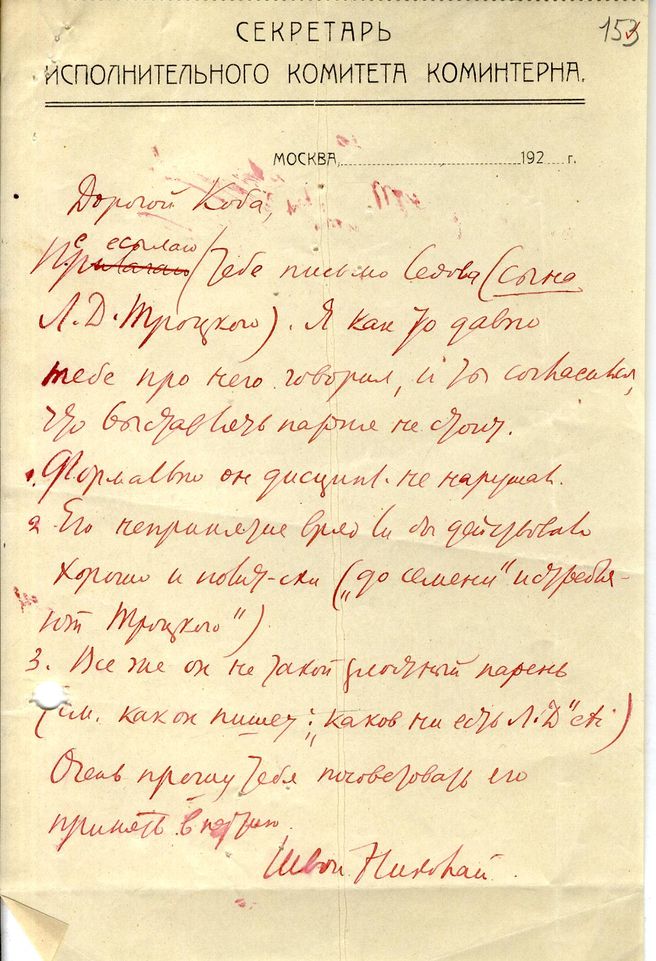 153
СЕКРЕТАРЬ
ИСПОЛНИТЕЛЬНОГО КОМИТЕТА КОМИНТЕРНА.
МОСКВА, 192 г.
Дорогой Коба,
Пересылаю тебе письмо Седова (сына
Л.Д. Троцкого). Я как то давно
тебе про него говорил, и ты согласился,
что выставлять партие не стоит.
1. Формально он дисципл. не нарушал.
2 Его неприятие вряд ли бы действовало
хорошо и полит-ски („до семени" истребля-
ют Троцкого")
3. Все же он не такой парень
(см. как он пишет: „каков ни есть Л.Д" etc)
Очень прошу тебя посоветовать его
принять в партию.
Твой Николай.